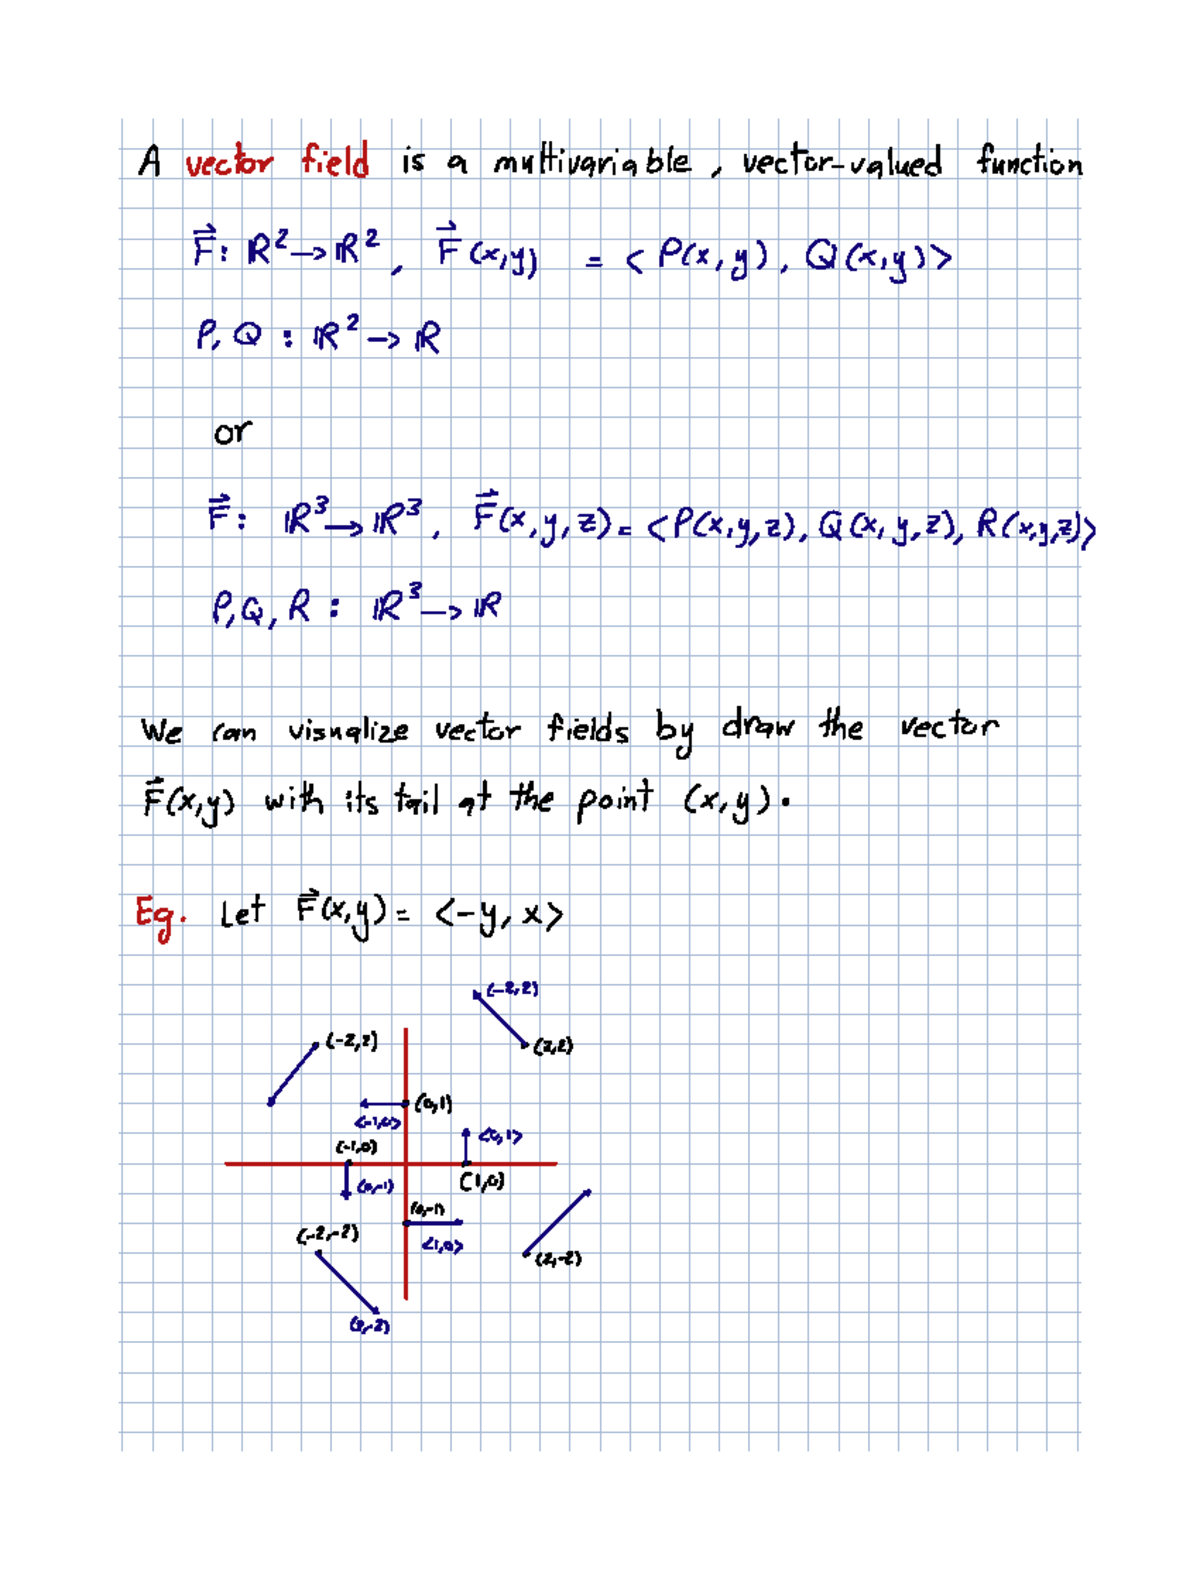 A vector field is a multivariable, vector-valued function
F⃗: ℝ² → ℝ², F⃗(x,y) = <P(x,y), Q(x,y)>
P, Q : ℝ² → ℝ
or
F⃗: ℝ³ → ℝ³, F⃗(x,y,z) = <P(x,y,z), Q(x,y,z), R(x,y,z)>
P, Q, R : ℝ³ → ℝ
We can visualize vector fields by draw the vector
F⃗(x,y) with its tail at the point (x,y).
Eg. Let F⃗(x,y) = <-y, x>
(-2,2)
(-2,2) (2,2)
(0,1)
<-1,0> <0,1>
(-1,0)
(0,-1) (1,0)
(0,-1)
(-2,-2) <1,0> (2,-2)
(2,-2)